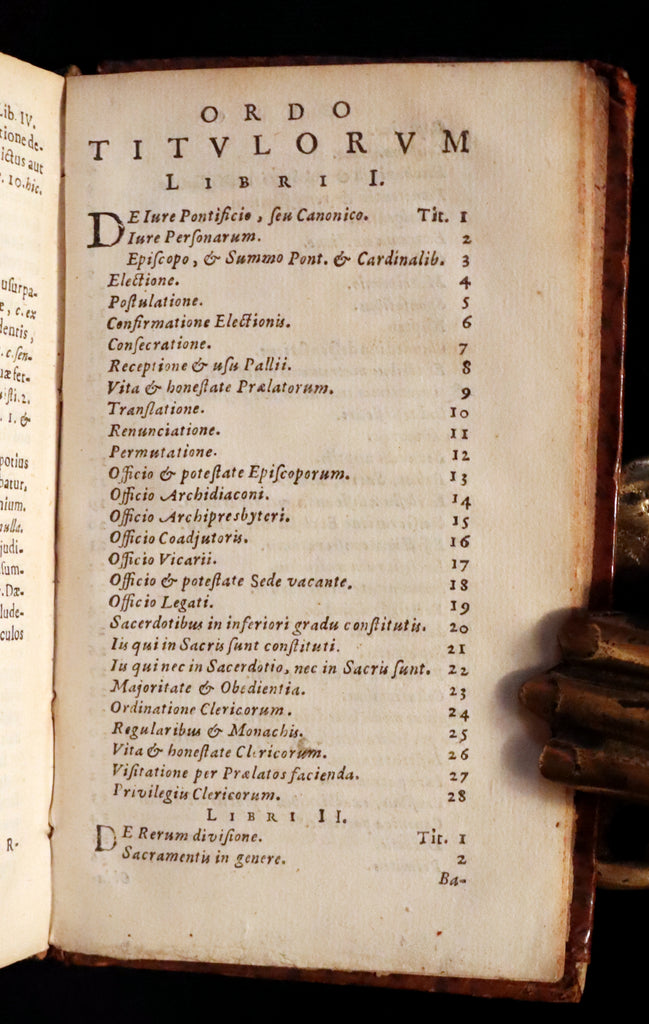 Lib. IV.
tione de-
ictus aut
. 10. hic.
usurpa-
e, c. ex
dentis,
. c. sen-
uæ fer-
. 1. &
potius
batur,
nium.
nulla.
judi-
sum-
. Dæ-
lude-
culos
R-
ORDO
TITVLORVM
LIBRI I.
DE Iure Pontificio, ſeu Canonico. Tit. 1
Iure Perſonarum. 2
Epiſcopo, & Summo Pont. & Cardinalib. 3
Electione. 4
Poſtulatione. 5
Confirmatione Electionis. 6
Conſecratione. 7
Receptione & uſu Pallii. 8
Vita & honeſtate Prælatorum. 9
Tranſlatione. 10
Renunciatione. 11
Permutatione. 12
Officio & poteſtate Epiſcoporum. 13
Officio Archidiaconi. 14
Officio Archipresbyteri. 15
Officio Coadjutoris. 16
Officio Vicarii. 17
Officio & poteſtate Sede vacante. 18
Officio Legati. 19
Sacerdotibus in inferiori gradu conſtitutis. 20
Iis qui in Sacris ſunt conſtituti. 21
Iis qui nec in Sacerdotio, nec in Sacris ſunt. 22
Majoritate & Obedientia. 23
Ordinatione Clericorum. 24
Regularibus & Monachis. 25
Vita & honeſtate Clericorum. 26
Viſitatione per Prælatos facienda. 27
Privilegiis Clericorum. 28
LIBRI II.
DE Rerum diviſione. Tit. 1
Sacramentis in genere. 2
Ba-